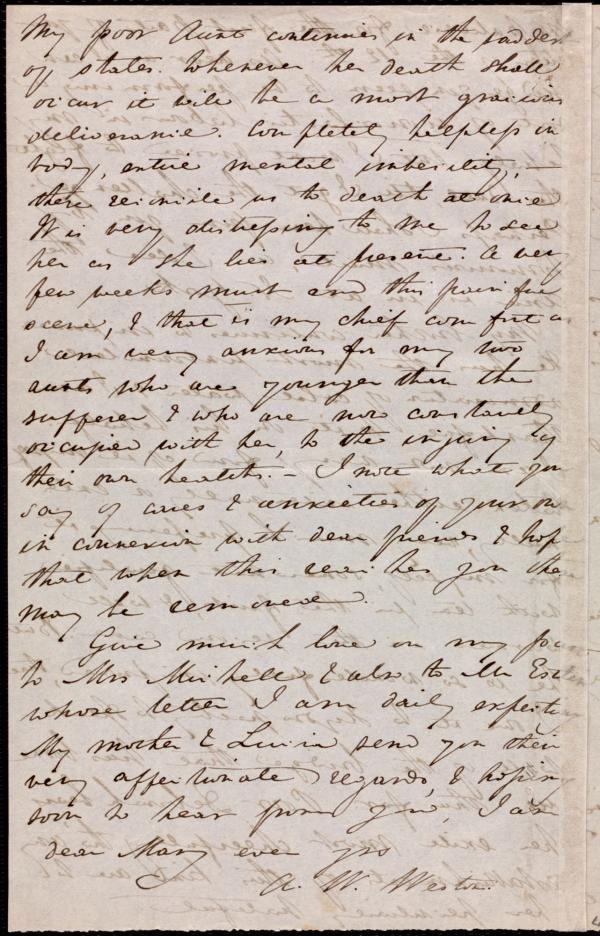 My poor Aunt continues in the sadde
of states. Whenever her death shall
occur it will be a most gracious
deliverance. Completely helpless in
body, entire mental imbecility, —
these reconcile us to death at once
It is very distressing to me to see
her as she lies at present. A very
few weeks must end this painful
scene, & that is my chief comfort as
I am very anxious for my two
aunts who are younger than the
sufferer & who are now constantly
occupied with her, to the injury of
their own health. — I note what you
say of cares & anxieties of your own
in connexion with dear friends & hope
that when this reaches you they
may be removed.
Give much love on my part
to Mrs Michell & also to Mr Est
whose letter I am daily expecting
My mother & Lucia send you their
very affectionate regards, & hoping
soon to hear from you, I am
dear Mary ever yrs
A. W. Weston.